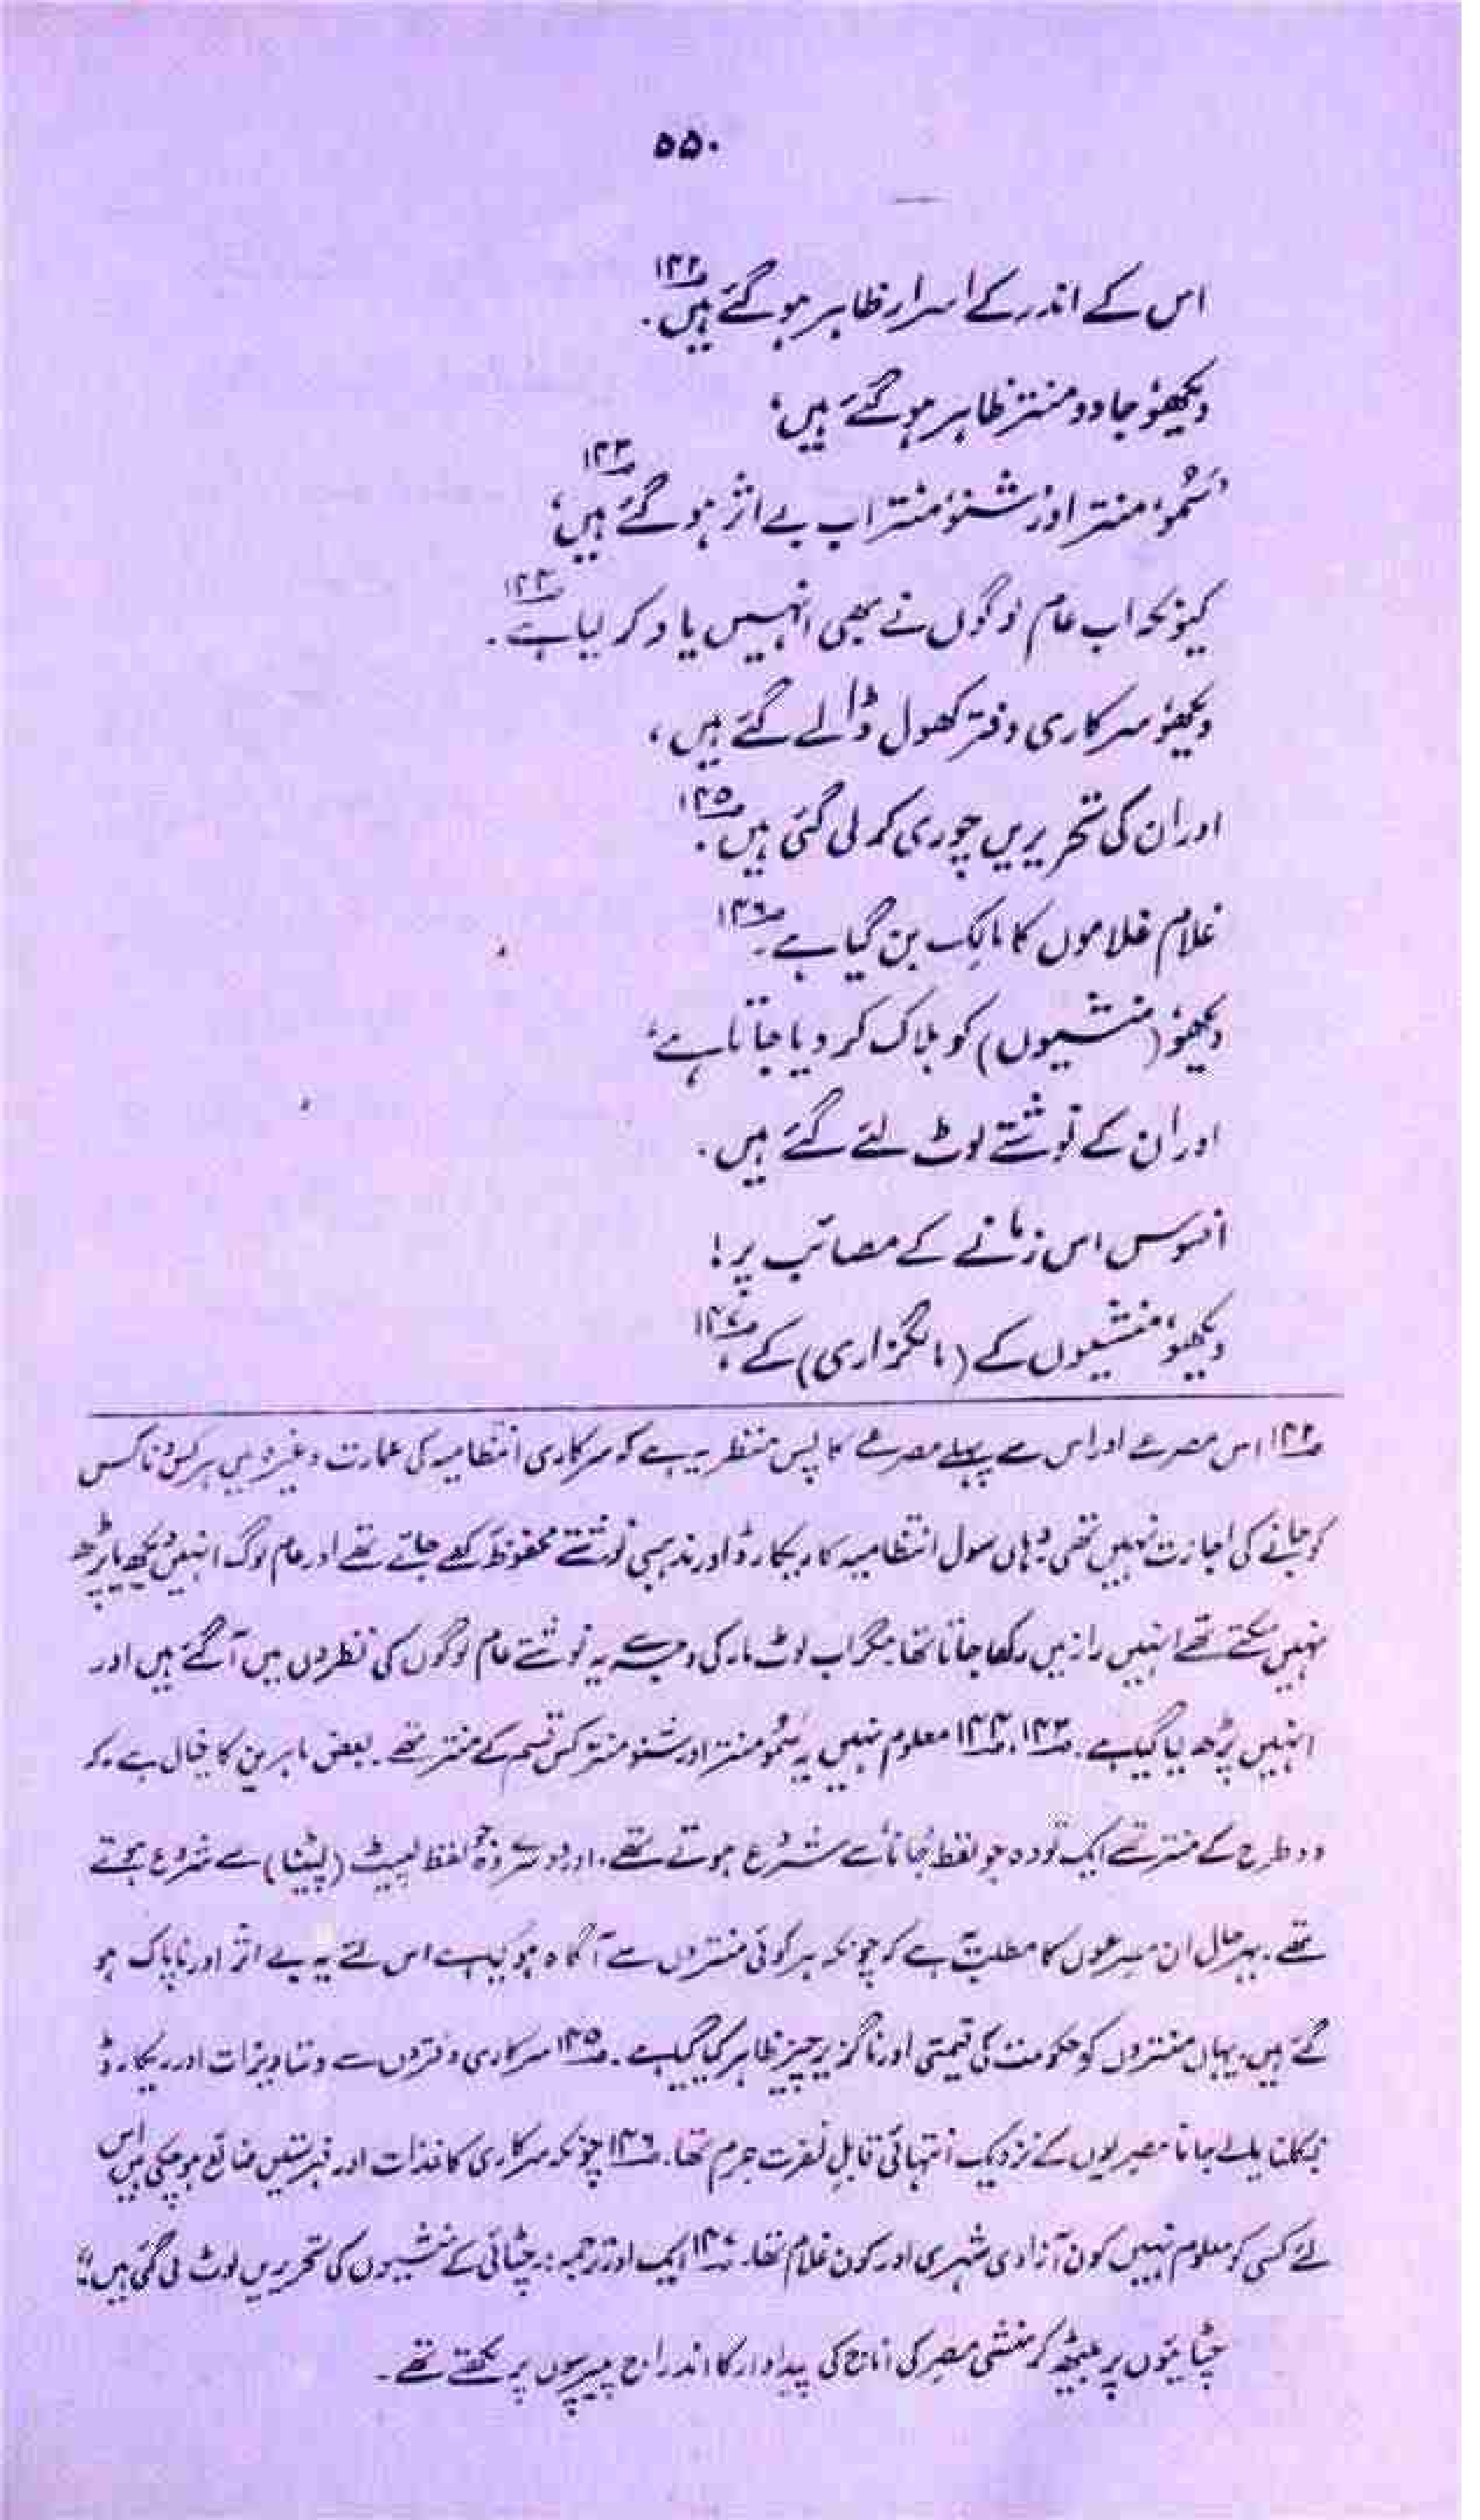 ۵۵۰
اس کے اندر کے اسرار ظاہر ہو گئے ہیں۔ ۱۴۲
دیکھو، جادو منتر ظاہر ہو گئے ہیں،
'شمو' منتر اور 'شنو' منتر اب بے اثر ہو گئے ہیں، ۱۴۳
کیونکہ اب عام لوگوں نے بھی انہیں یاد کر لیا ہے۔ ۱۴۴
دیکھو، سرکاری دفتر کھول ڈالے گئے ہیں،
اور ان کی تحریریں چوری کر لی گئی ہیں۔ ۱۴۵
غلام غلاموں کا مالک بن گیا ہے۔ ۱۴۶
دیکھو، (منشیوں) کو ہلاک کر دیا جاتا ہے،
اور ان کے نوشتے لوٹ لئے گئے ہیں۔
افسوس اس زمانے کے مصائب پر!
دیکھو، منشیوں کے (مالگزاری) کے، ۱۴۷
۱۴۲ اس مصرعے اور اس سے پہلے مصرعے کا پس منظر یہ ہے کہ سرکاری انتظامیہ کی عمارت وغیرہ میں ہر کس و ناکس
کو جانے کی اجازت نہیں تھی وہاں سول انتظامیہ کا ریکارڈ اور مذہبی نوشتے محفوظ رکھے جاتے تھے اور عام لوگ انہیں دیکھ یا پڑھ
نہیں سکتے تھے انہیں راز میں رکھا جاتا تھا مگر اب لوٹ مار کی وجہ سے یہ نوشتے عام لوگوں کی نظروں میں آ گئے ہیں اور
انہیں پڑھ لیا گیا ہے۔ ۱۴۳، ۱۴۴ معلوم نہیں یہ شمو منتر اور شنو منتر کس قسم کے منتر تھے۔ بعض ماہرین کا خیال ہے کہ
دو طرح کے منتر تھے ایک تو وہ جو لفظ 'جانا' سے شروع ہوتے تھے۔ اور دوسرے وہ جو لفظ لپیٹ (لپیٹنا) سے شروع ہوتے
تھے۔ بہر حال ان مصرعوں کا مطلب یہ ہے کہ چونکہ ہر کوئی منتروں سے آگاہ ہو گیا ہے اس لئے یہ بے اثر اور ناپاک ہو
گئے ہیں۔ یہاں منتروں کو حکومت کی قیمتی اور ناگزیر چیز ظاہر کیا گیا ہے۔ ۱۴۵ سرکاری دفتروں سے دستاویزات اور ریکارڈ
نکلنا یا لے جانا مصریوں کے نزدیک انتہائی قابل نفرت جرم تھا۔ ۱۴۶ چونکہ سرکاری کاغذات اور فہرستیں ضائع ہو چکی ہیں اس
لئے کسی کو معلوم نہیں کون آزاد ی شہری اور کون غلام تھا۔ ۱۴۷ ایک اور ترجمہ:۔ چٹائی کے منشیوں کی تحریریں لوٹ لی گئی ہیں"
چٹائیوں پر بیٹھ کر منشی مصر کی اناج کی پیداوار کا اندراج پیپرسوں پر لکھتے تھے۔